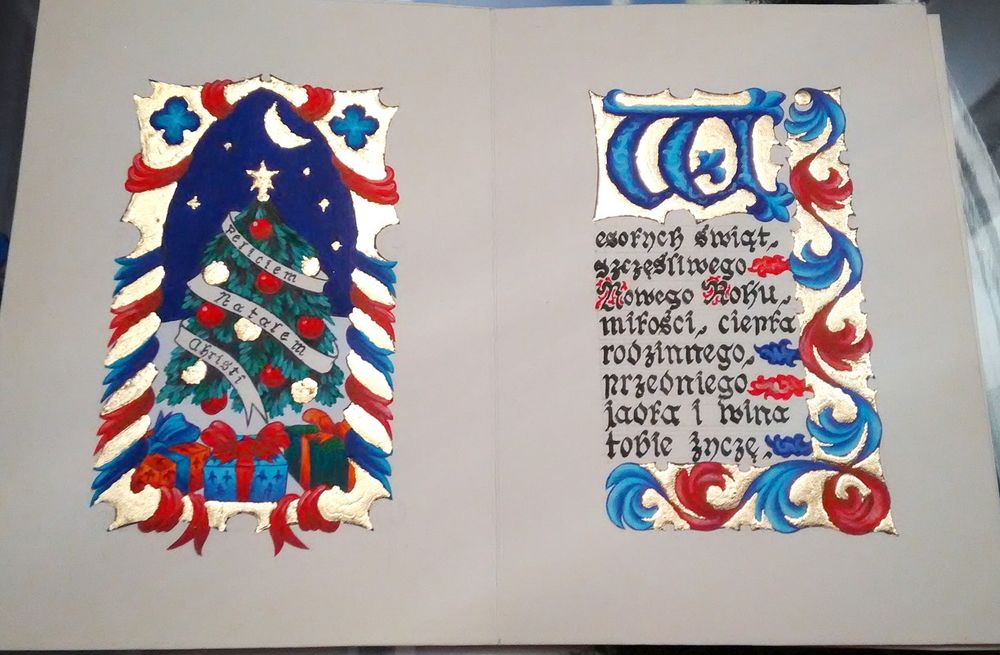 Feliciem
Natalem
Christi
W
esołych świąt,
szczęśliwego
Nowego Roku,
miłości, ciepła
rodzinnego,
przedniego
jadła i wina
tobie życzę.